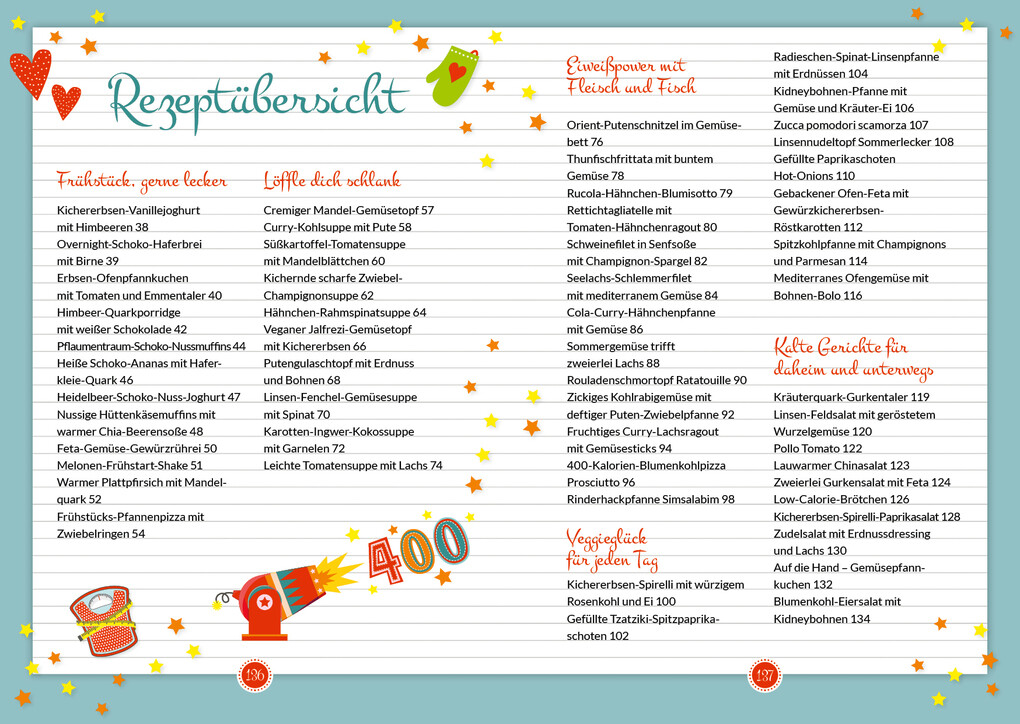 Rezeptübersicht
Frühstück, gerne lecker
Kichererbsen-Vanillejoghurt
mit Himbeeren 38
Overnight-Schoko-Haferbrei
mit Birne 39
Erbsen-Ofenpfannkuchen
mit Tomaten und Emmentaler 40
Himbeer-Quarkporridge
mit weißer Schokolade 42
Pflaumentraum-Schoko-Nussmuffins 44
Heiße Schoko-Ananas mit Hafer-
kleie-Quark 46
Heidelbeer-Schoko-Nuss-Joghurt 47
Nussige Hüttenkäsemuffins mit
warmer Chia-Beerensoße 48
Feta-Gemüse-Gewürzrührei 50
Melonen-Frühstart-Shake 51
Warmer Plattpfirsich mit Mandel-
quark 52
Frühstücks-Pfannenpizza mit
Zwiebelringen 54
Löffle dich schlank
Cremiger Mandel-Gemüsetopf 57
Curry-Kohlsuppe mit Pute 58
Süßkartoffel-Tomatensuppe
mit Mandelblättchen 60
Kichernde scharfe Zwiebel-
Champignonsuppe 62
Hähnchen-Rahmspinatsuppe 64
Veganer Jalfrezi-Gemüsetopf
mit Kichererbsen 66
Putengulaschtopf mit Erdnuss
und Bohnen 68
Linsen-Fenchel-Gemüsesuppe
mit Spinat 70
Karotten-Ingwer-Kokossuppe
mit Garnelen 72
Leichte Tomatensuppe mit Lachs 74
400
136
Eiweißpower mit
Fleisch und Fisch
Orient-Putenschnitzel im Gemüse-
bett 76
Thunfischfrittata mit buntem
Gemüse 78
Rucola-Hähnchen-Blumisotto 79
Rettichtagliatelle mit
Tomaten-Hähnchenragout 80
Schweinefilet in Senfsoße
mit Champignon-Spargel 82
Seelachs-Schlemmerfilet
mit mediterranem Gemüse 84
Cola-Curry-Hähnchenpfanne
mit Gemüse 86
Sommergemüse trifft
zweierlei Lachs 88
Rouladenschmortopf Ratatouille 90
Zickiges Kohlrabigemüse mit
deftiger Puten-Zwiebelpfanne 92
Fruchtiges Curry-Lachsragout
mit Gemüsesticks 94
400-Kalorien-Blumenkohlpizza
Prosciutto 96
Rinderhackpfanne Simsalabim 98
Veggieglück
für jeden Tag
Kichererbsen-Spirelli mit würzigem
Rosenkohl und Ei 100
Gefüllte Tzatziki-Spitzpaprika-
schoten 102
Radieschen-Spinat-Linsenpfanne
mit Erdnüssen 104
Kidneybohnen-Pfanne mit
Gemüse und Kräuter-Ei 106
Zucca pomodori scamorza 107
Linsennudeltopf Sommerlecker 108
Gefüllte Paprikaschoten
Hot-Onions 110
Gebackener Ofen-Feta mit
Gewürzkichererbsen-
Röstkarotten 112
Spitzkohlpfanne mit Champignons
und Parmesan 114
Mediterranes Ofengemüse mit
Bohnen-Bolo 116
Kalte Gerichte für
daheim und unterwegs
Kräuterquark-Gurkentaler 119
Linsen-Feldsalat mit geröstetem
Wurzelgemüse 120
Pollo Tomato 122
Lauwarmer Chinasalat 123
Zweierlei Gurkensalat mit Feta 124
Low-Calorie-Brötchen 126
Kichererbsen-Spirelli-Paprikasalat 128
Zudelsalat mit Erdnussdressing
und Lachs 130
Auf die Hand – Gemüsepfann-
kuchen 132
Blumenkohl-Eiersalat mit
Kidneybohnen 134
137